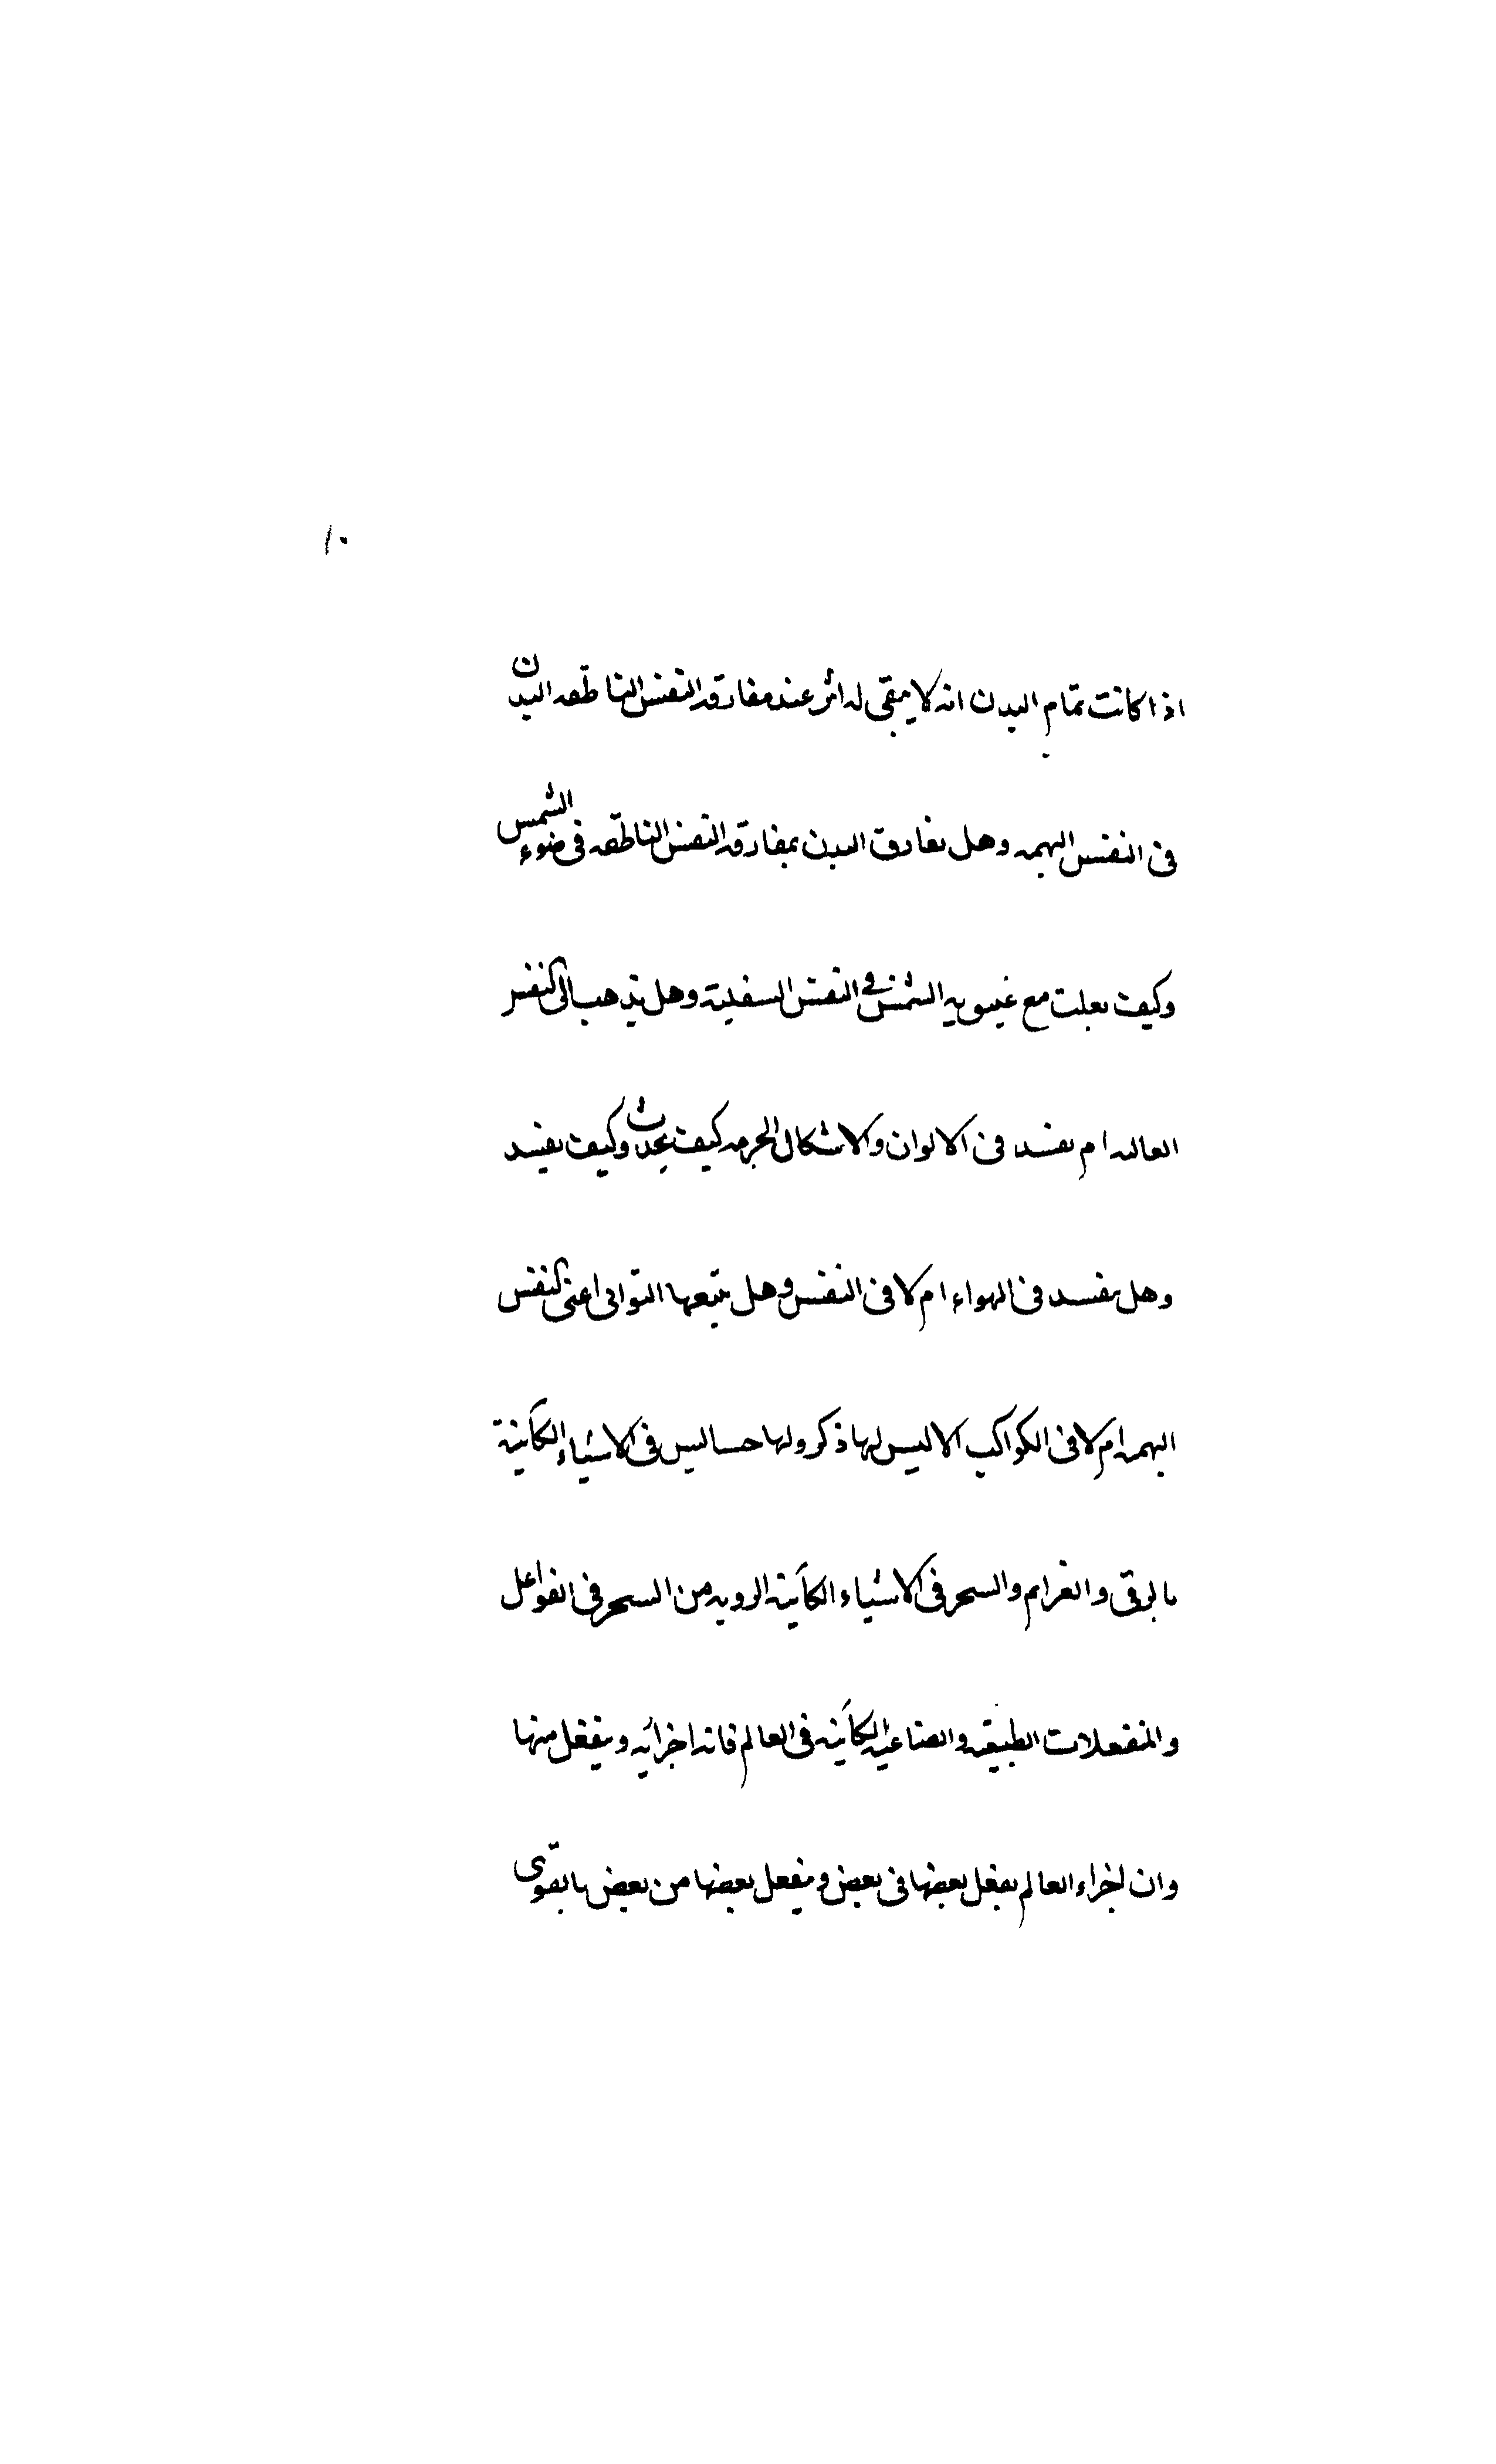 ١٠
اذا كانت تمام البدن انه لا يبقى له اثر عند مفارقه النفس الناطقه البدن
فى النفس البهيميه وهل تفارق البدن بمفارقه النفس الناطقه فى ضوء الشمس
وكيف مع غيبوبه الشمس فى النفس السفلية وهل تذهب الى النفس
العاليه ام تفسد فى الالوان والاشكال الجرميه كيف تحدث وكيف تفسد
وهل تفسد فى الهواء ام لا فى النفس وهل يتبعها التوانى اعنى النفس
البهيميه ام لا فى الكواكب الا ليس لها ذكر ولها حساليس فى الاشياء الكاينة
بالرقى والعزايم والسحر فى الاشياء الكاينة من السحر فى الفواعل
والمنفعلات الطبيعيه والصناعيه الكاينه فى العالم فانه اجزائه وينفعل منها
وان اجزاء العالم يفعل بعضها فى بعض وينفعل بعضها من بعض بالقوى